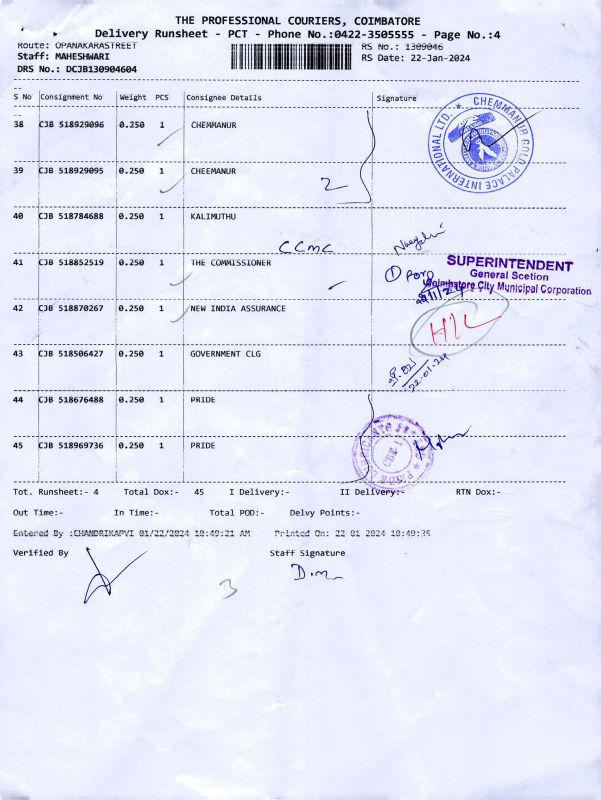 THE PROFESSIONAL COURIERS, COIMBATORE
Delivery Runsheet - PCT - Phone No.:0422-3505555 - Page No.:4
Route: OPANAKARASTREET
RS No.: 1309046
Staff: MAHESHWARI
RS Date: 22-Jan-2024
DRS No.: DCJB130904604
S No Consignment No Weight PCS Consignee Details Signature
38 CJB 518929096 0.250 1 CHEMMANUR
CHEMMANUR GOLD PALACE INTERNATIONAL LTD.
39 CJB 518929095 0.250 1 CHEEMANUR
2
40 CJB 518784688 0.250 1 KALIMUTHU
CCMC
41 CJB 518852519 0.250 1 THE COMMISSIONER
SUPERINTENDENT
General Scetion
Coimbatore City Municipal Corporation
42 CJB 518870267 0.250 1 NEW INDIA ASSURANCE
43 CJB 518506427 0.250 1 GOVERNMENT CLG
22-01-24
44 CJB 518676488 0.250 1 PRIDE
45 CJB 518969736 0.250 1 PRIDE
Tot. Runsheet:- 4 Total Dox:- 45 I Delivery:- II Delivery:- RTN Dox:-
Out Time:- In Time:- Total POD:- Delvy Points:-
Entered By :CHANDRIKAPVI 01/22/2024 10:49:21 AM Printed On: 22 01 2024 10:49:35
Verified By Staff Signature
3